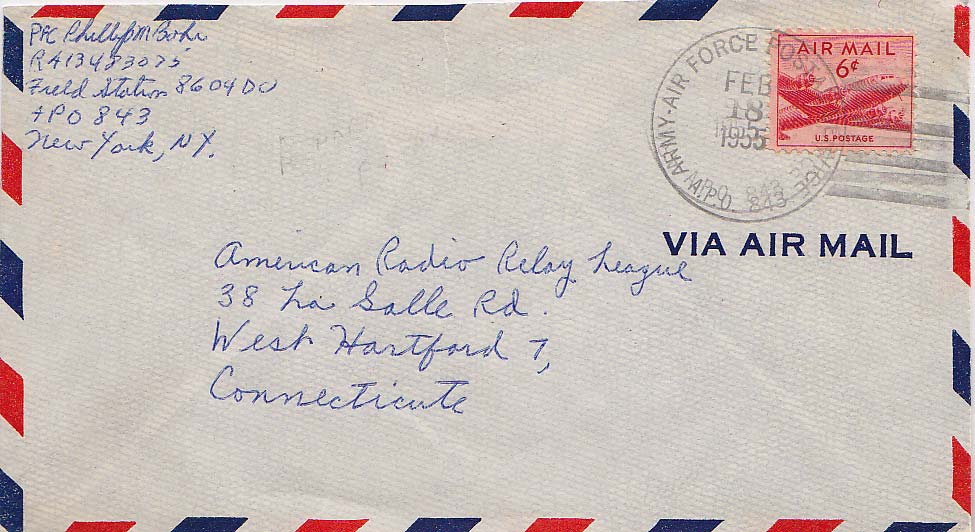 Pfc Phillip M Bohr
RA13483075
Field Station 8604 DU
APO 843
New York, NY.
ARMY-AIR FORCE POSTAL SERVICE
FEB
18
1955
A.P.O. 843
AIR MAIL
6¢
U.S. POSTAGE
VIA AIR MAIL
American Radio Relay League
38 La Salle Rd.
West Hartford 7,
Connecticute